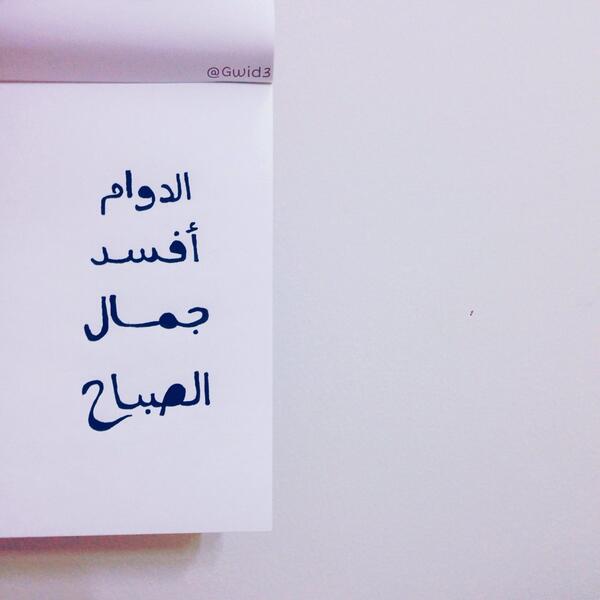 @Gwid3
الدوام
أفسد
جمال
الصباح